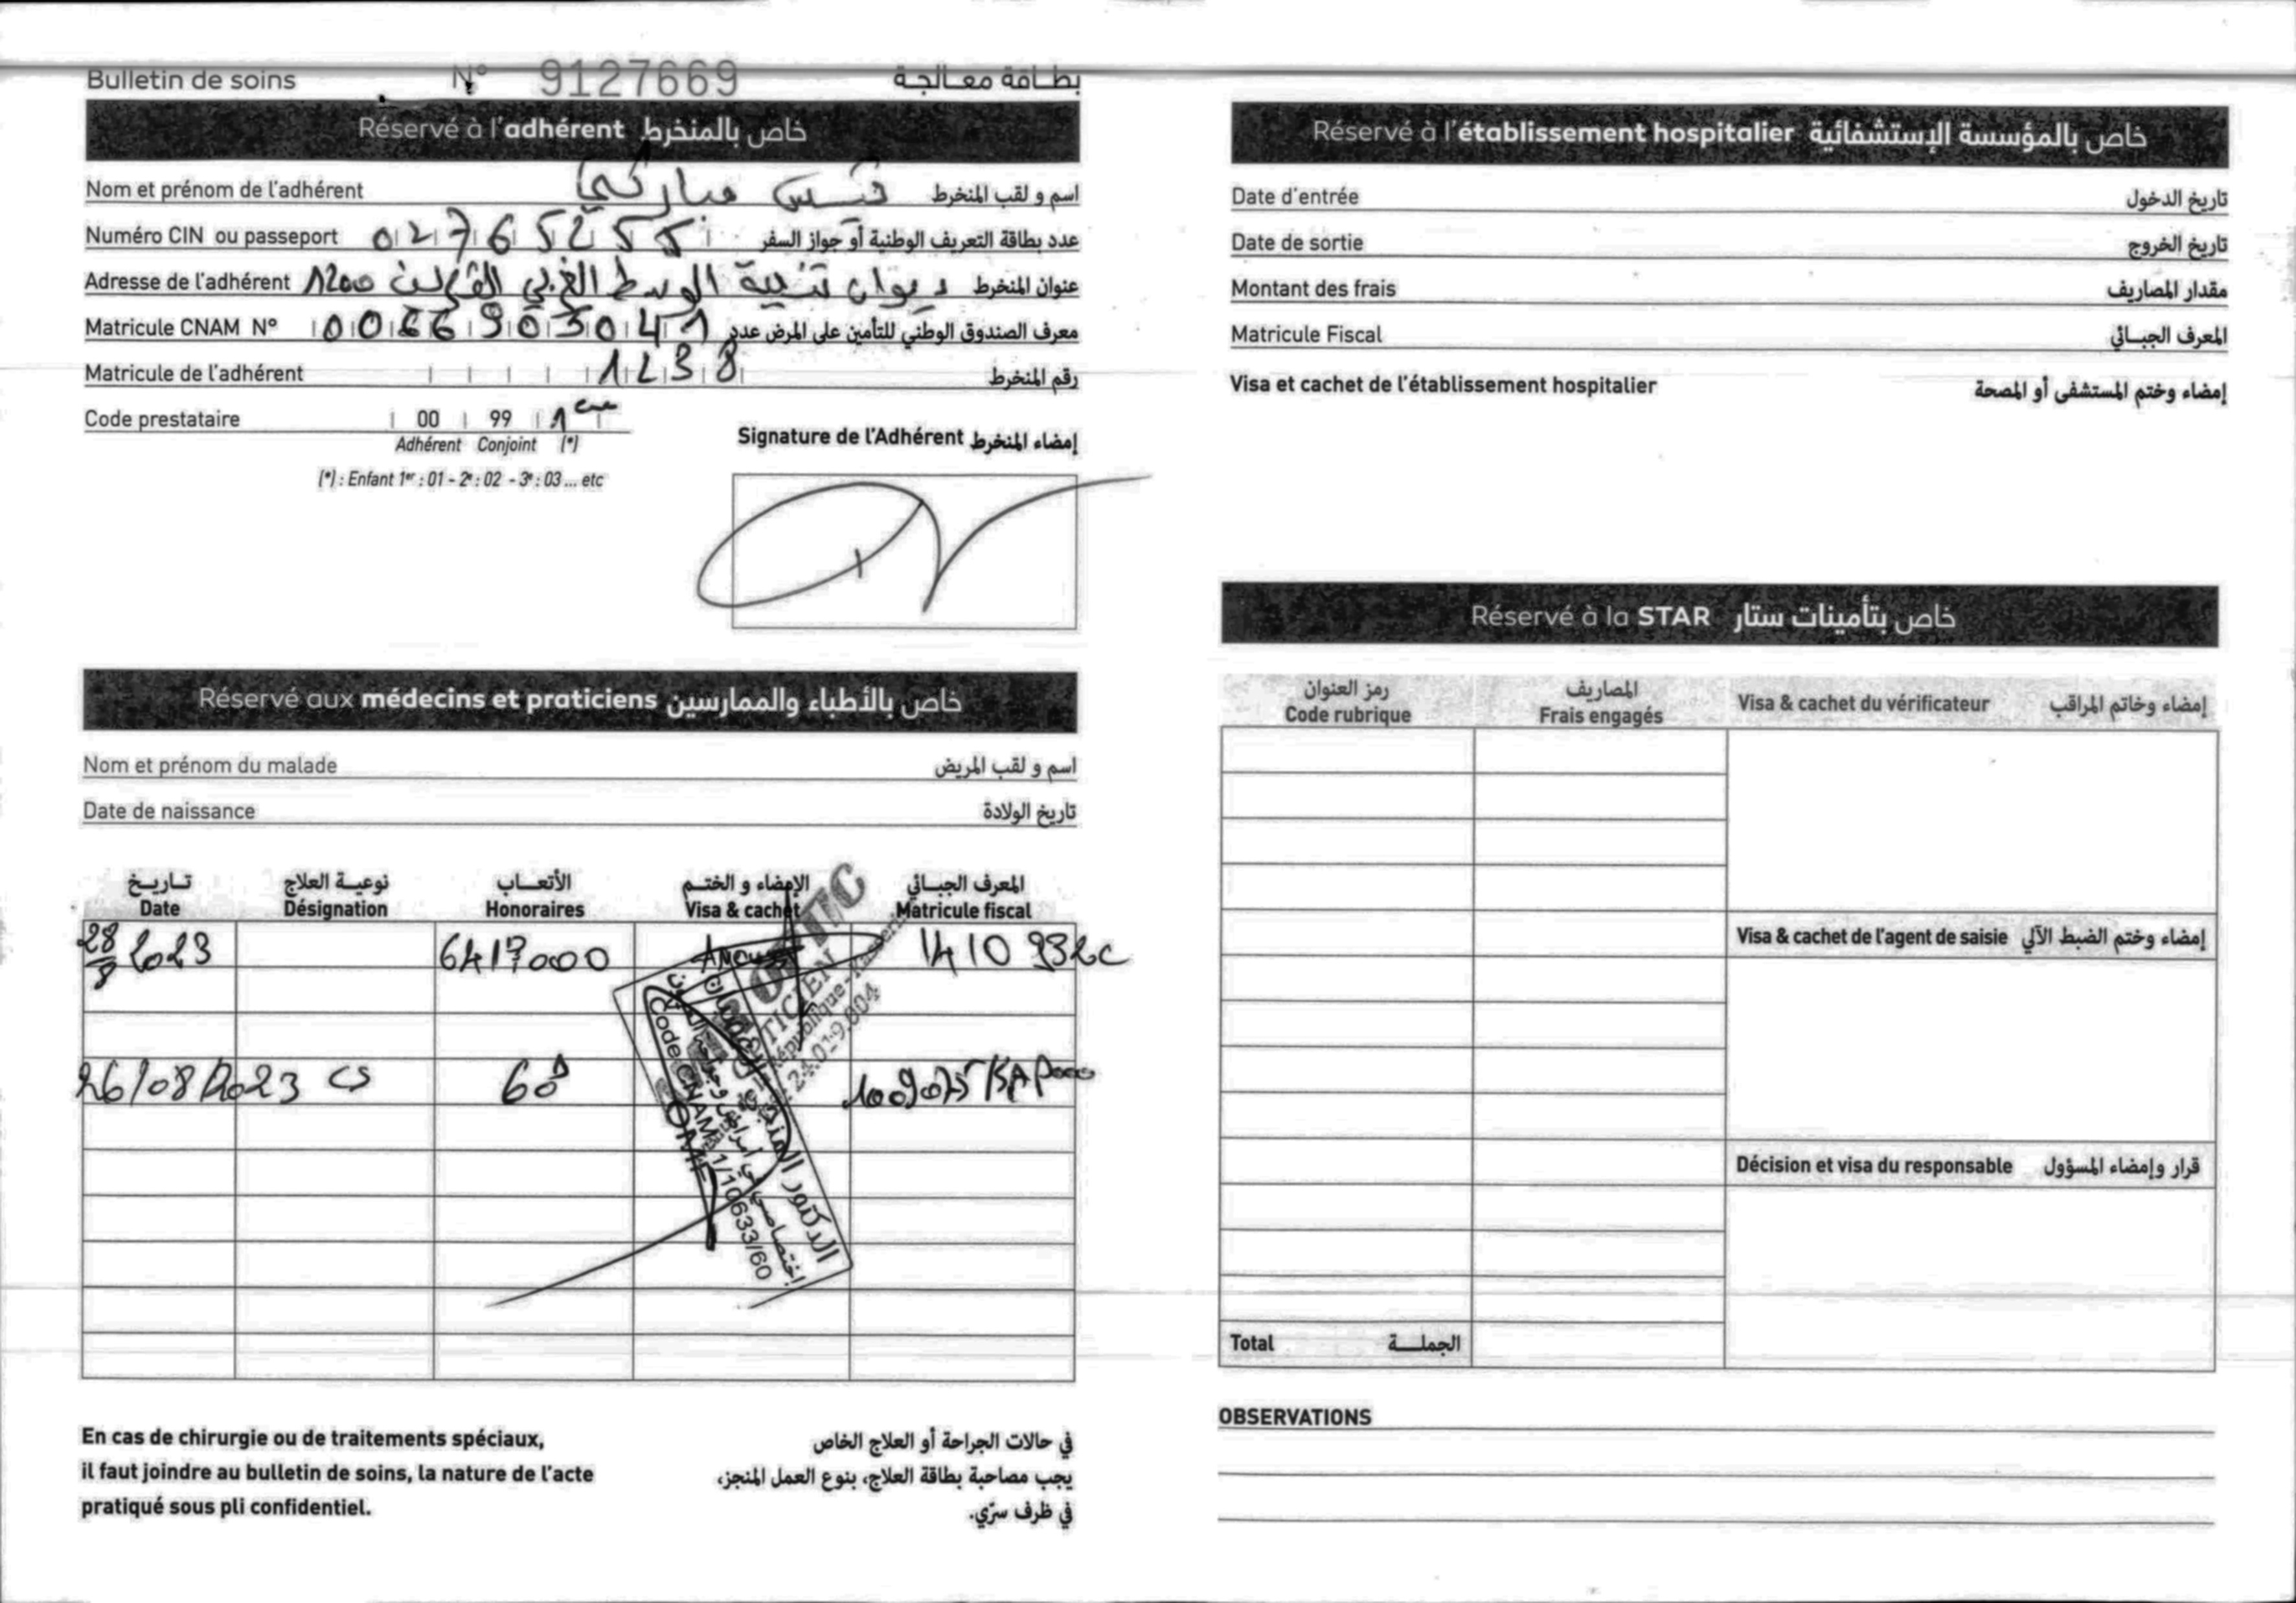 Bulletin de soins N° 9127669 بطاقة معالجة
Réservé à l'adhérent خاص بالمنخرط
Nom et prénom de l'adhérent قيس مباركي اسم و لقب المنخرط
Numéro CIN ou passeport 02765255 عدد بطاقة التعريف الوطنية أو جواز السفر
Adresse de l'adhérent ديوان تنمية الوسط الغربي القصرين 1200 عنوان المنخرط
Matricule CNAM N° 0066903041 معرف الصندوق الوطني للتأمين على المرض عدد
Matricule de l'adhérent 1238 رقم المنخرط
Code prestataire 00 99
Adhérent Conjoint (*)
(*) : Enfant 1er : 01 - 2e : 02 - 3e : 03 ... etc
Signature de l'Adhérent إمضاء المنخرط
Réservé aux médecins et praticiens خاص بالأطباء والممارسين
Nom et prénom du malade اسم و لقب المريض
Date de naissance تاريخ الولادة
تـاريـخ نوعيـة العلاج الأتعـاب الإمضاء و الختـم المعرف الجبـائي
Date Désignation Honoraires Visa & cachet Matricule fiscal
28/8 2023 6417000 1410932C
26/08/2023 CS 60D 1009075
الدكتور
Code CNAM 1/10633/60
En cas de chirurgie ou de traitements spéciaux,
il faut joindre au bulletin de soins, la nature de l'acte
pratiqué sous pli confidentiel.
في حالات الجراحة أو العلاج الخاص
يجب مصاحبة بطاقة العلاج، بنوع العمل المنجز،
في ظرف سرّي.
Réservé à l'établissement hospitalier خاص بالمؤسسة الإستشفائية
Date d'entrée تاريخ الدخول
Date de sortie تاريخ الخروج
Montant des frais مقدار المصاريف
Matricule Fiscal المعرف الجبـائي
Visa et cachet de l'établissement hospitalier إمضاء وختم المستشفى أو المصحة
Réservé à la STAR خاص بتأمينات ستار
رمز العنوان المصاريف
Code rubrique Frais engagés Visa & cachet du vérificateur إمضاء وخاتم المراقب
Visa & cachet de l'agent de saisie إمضاء وختم الضبط الآلي
Décision et visa du responsable قرار وإمضاء المسؤول
Total الجملـــة
OBSERVATIONS